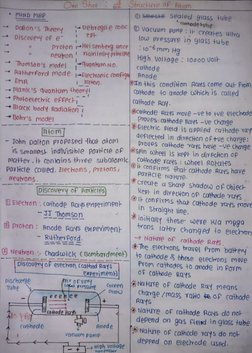 One Shot of Structure Of Atom
MIND MAP
Dalton's Theory
Discovery of e⁻
proton
neutron
Thomson's model
Rutherford model
EMR
Plank's Quantum theory
Photoelectric effect
Black body Radiation
Bohr's model
Quantum No.
Atom
John Dalton proposed that atom
is smallest indivisible particle of
matter. It contains three subatomic
particle called, Electrons, protons,
neutrons.
Discovery of Particles
① Electron : cathode rays experiment
JJ Thomson
② Proton : Anode rays experiment
Rutherford
③ Neutron : Chadwick (bombardment)
Discovery of electron (cathode Rays
Experiment)
Discharge
tube
cathode rays
cathode
Anode
vacuum pump
High voltage
① sealed glass tube
② Vacuum pump : it creates ultra
low pressure in glass tube
10⁻⁴ mm Hg
High Voltage : 10000 Volt
cathode
Anode
In this condition rays come out from
cathode to anode which is called
cathode ray.
cathode Rays move -ve to +ve electrode
moves cathode rays -ve charge
Electric field is applied cathode rays
deflected in direction of +ve charge
proves cathode rays have -ve charge
When wheel is kept in direction of
cathode rays : wheel Rotates
it confirms that cathode rays have
particle nature.
Create a sharp shadow of object
kept in direction of cathode rays
it confirms that cathode rays move
in straight line.
Nature of cathode Rays
The electrons move from battery
to cathode & these electrons move
from cathodes to anode in form
of cathode Rays.
Nature of cathode Ray means
charge/mass ratio of cathode
Rays
Nature of cathode Rays do not
depend on gas filled in glass tube
Nature of cathode Rays do not
depend on electrode used.